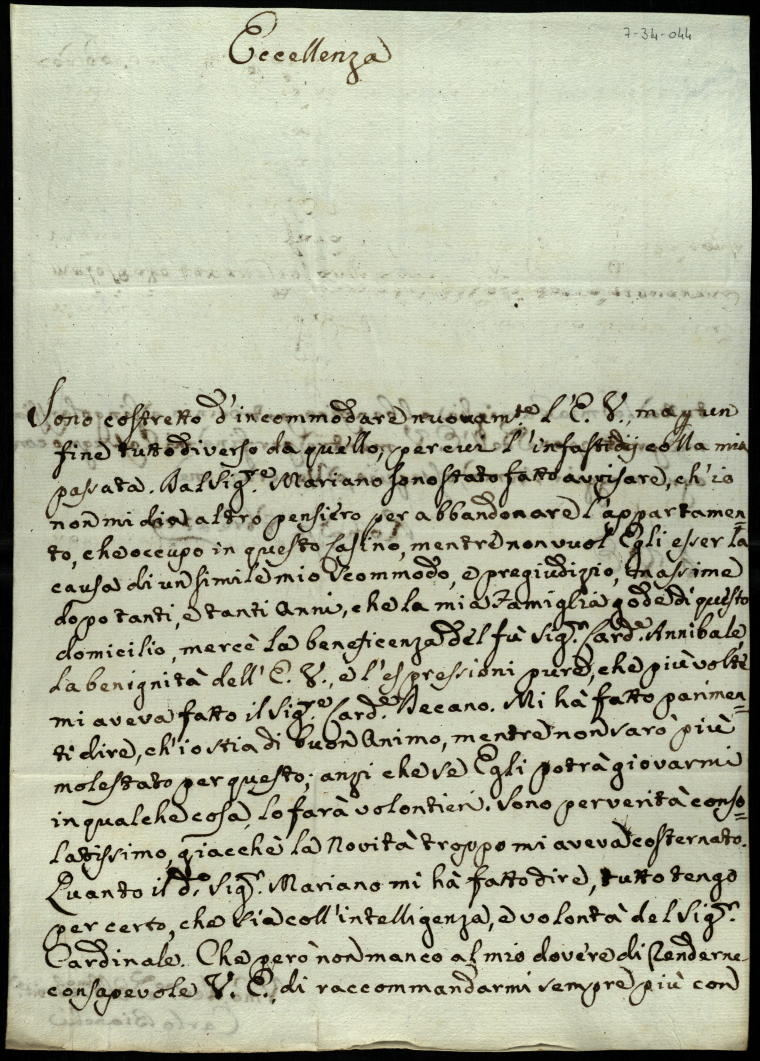 7-34-044
Eccellenza
Sono costretto d'incommodare nuovam.te l'E. V., ma p un
fine tutto diverso da quello, per cui l'infastidij colla mia
passata. Dal Sig.re Mariano sono stato fatto avvisare, ch'io
non mi dia altro pensiero per abbandonare l'appartamen=
to, che occupo in questo Casino, mentre non vuol' Egli esser la
causa di un simile mio scommodo, e pregiudizio, massime
dopo tanti, e tanti Anni, che la mia Famiglia gode di questo
domicilio, mercè la beneficenza del fù Sig.r Card.e Annibale
la benignità dell'E. V., e l'espressioni pure, che più volte
mi aveva fatto il Sig.re Card.e Decano. Mi hà fatto parimen=
ti dire, ch'io stia di buon Animo, mentre non sarò più
molestato per questo; anzi che se Egli potrà giovarmi
in qualche cosa, lo farà volontieri. Sono per verità conso=
latissimo, giacchè la Novità troppo mi aveva costernato.
Quanto il d.o Sig.r Mariano mi hà fatto dire, tutto tengo
per certo, che sia coll'intelligenza, e volontà del Sig.r
Cardinale. Che però non manco al mio dovere di renderne
consapevole V. E., di raccommandarmi sempre più con